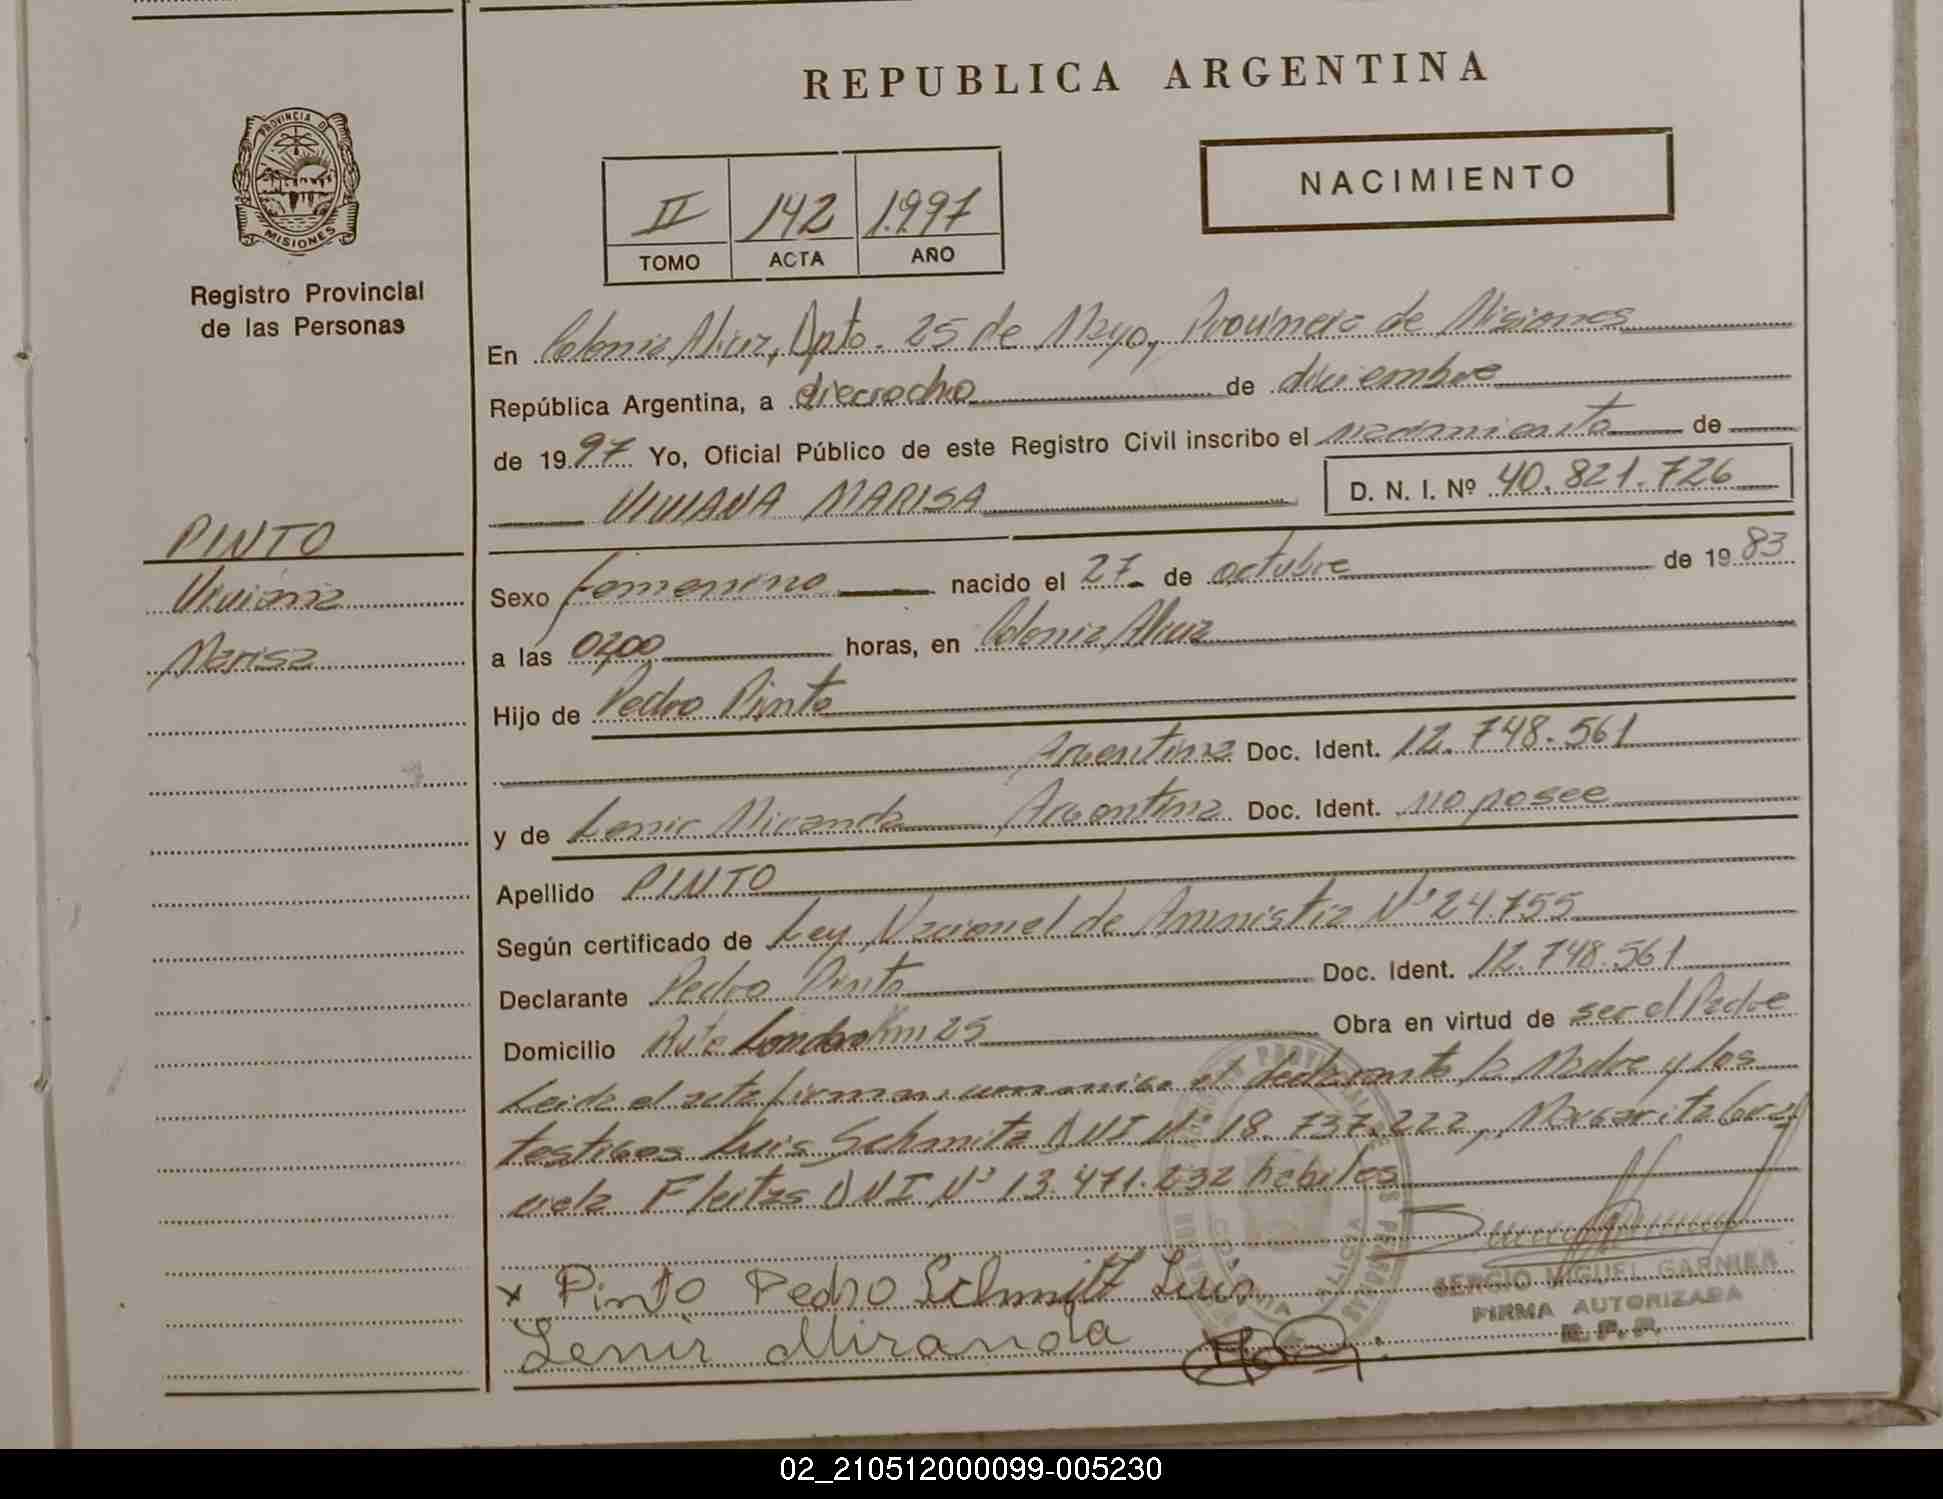 REPUBLICA ARGENTINA
PROVINCIA DE
MISIONES
Registro Provincial
de las Personas
NACIMIENTO
II 142 1997
TOMO ACTA AÑO
En Colonia Alicia, Dpto. 25 de Mayo, Provincia de Misiones
República Argentina, a dieciocho de diciembre
de 1997 Yo, Oficial Público de este Registro Civil inscribo el nacimiento de
VIVIANA MARISA D. N. I. Nº 40.821.726
PINTO
Viviana
Marisa
Sexo femenino nacido el 27 de octubre de 1983
a las 0200 horas, en Colonia Alicia
Hijo de Pedro Pinto
Argentina Doc. Ident. 12.748.561
y de Lenir Miranda Argentina Doc. Ident. no posee
Apellido PINTO
Según certificado de Ley Nacional de Amnistia Nº 24.755
Declarante Pedro Pinto Doc. Ident. 12.748.561
Domicilio Ruta Km 25 Obra en virtud de ser el Padre
Leida el acta firman conmigo el declarante la Madre y los
testigos Luis Schmitz DNI Nº 18.737.222, Margarita
Fleitas DNI Nº 13.471.232 habiles
x Pinto Pedro Schmitt Luis
Lenir Miranda
SERGIO MIGUEL GARNIER
FIRMA AUTORIZADA
R. P. P.
02_210512000099-005230